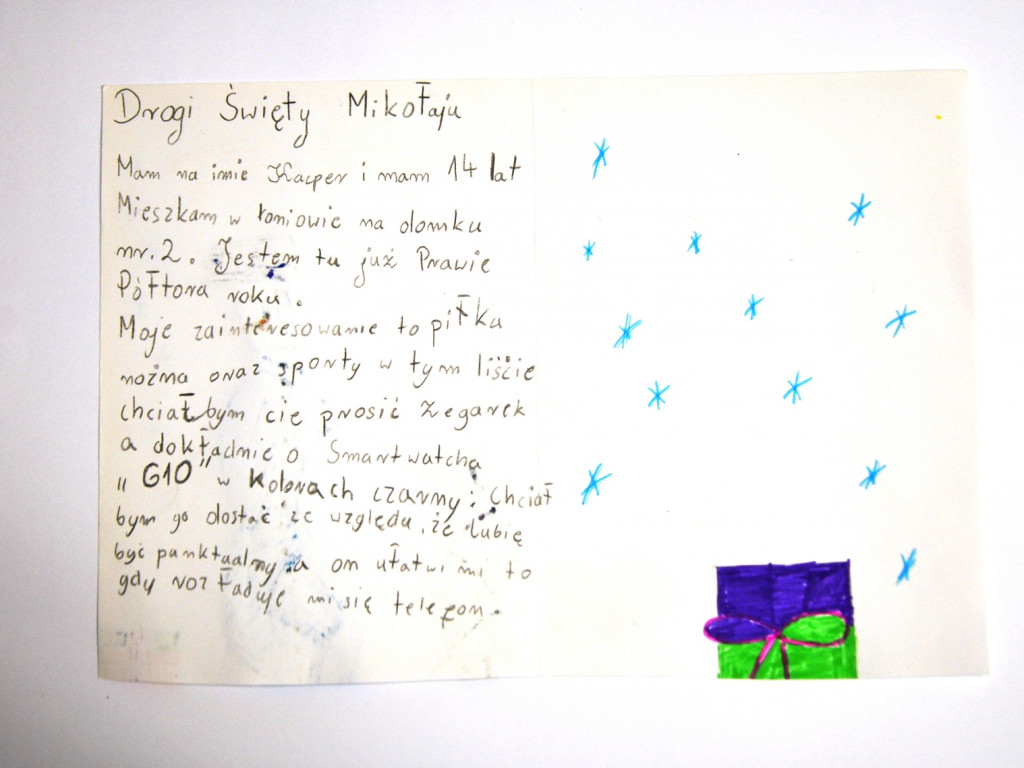 Drogi Święty Mikołaju
Mam na imie Kacper i mam 14 lat
Mieszkam w łoniowie na domku
nr. 2. Jestem tu już Prawie
Półtora roku.
Moje zainteresowanie to piłka
nożna oraz sporty w tym liście
chciał bym cię prosić Zegarek
a dokładnie o Smartwatcha
„G10" w kolorach czarny. Chciał
bym go dostać ze względu, że lubię
być punktualny a on ułatwi mi to
gdy rozładuje mi się telefon.